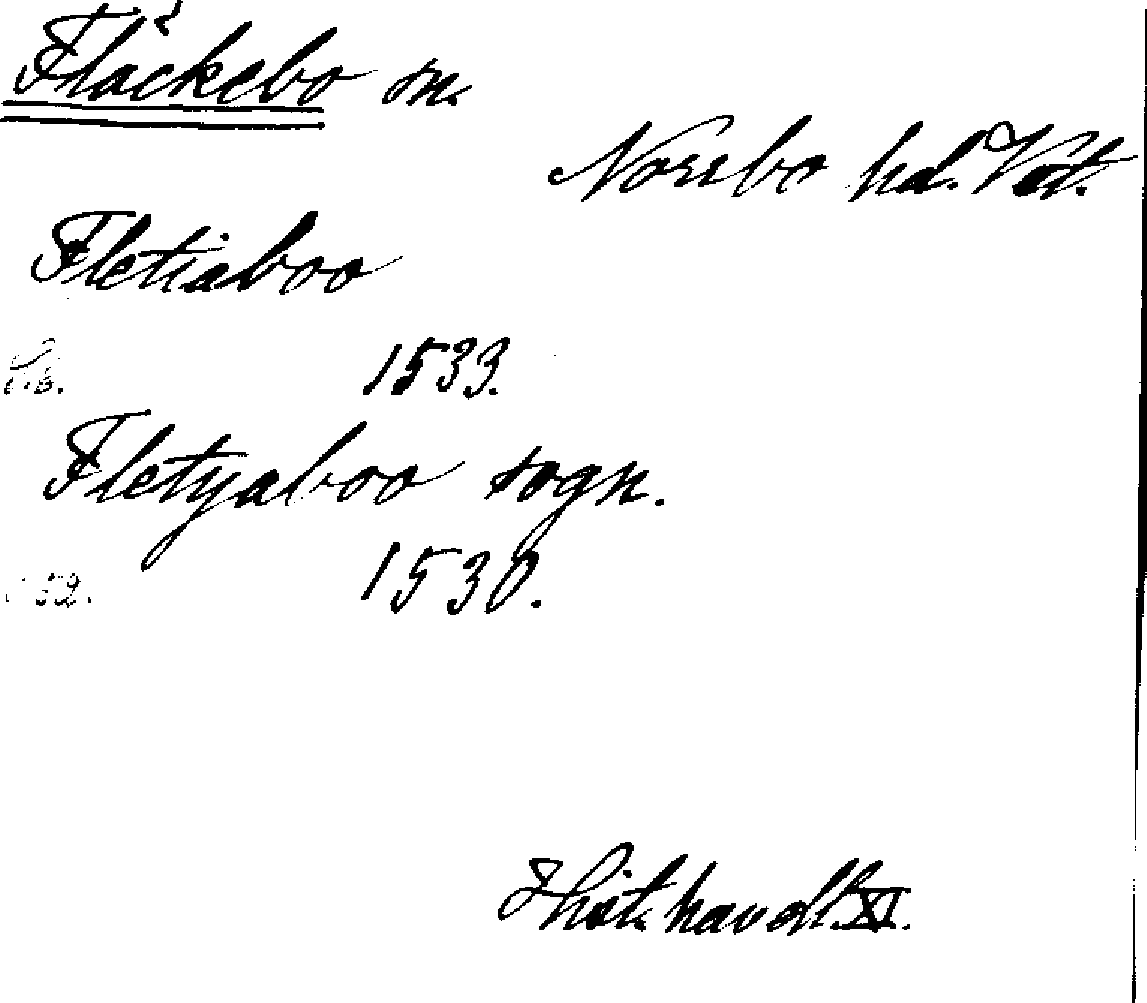 Fläckebo sn.
Norrbo hd. Vst.
Fletiaboo
1533.
Fletyaboo sogn.
52. 1530.
Hist. handl. XI.